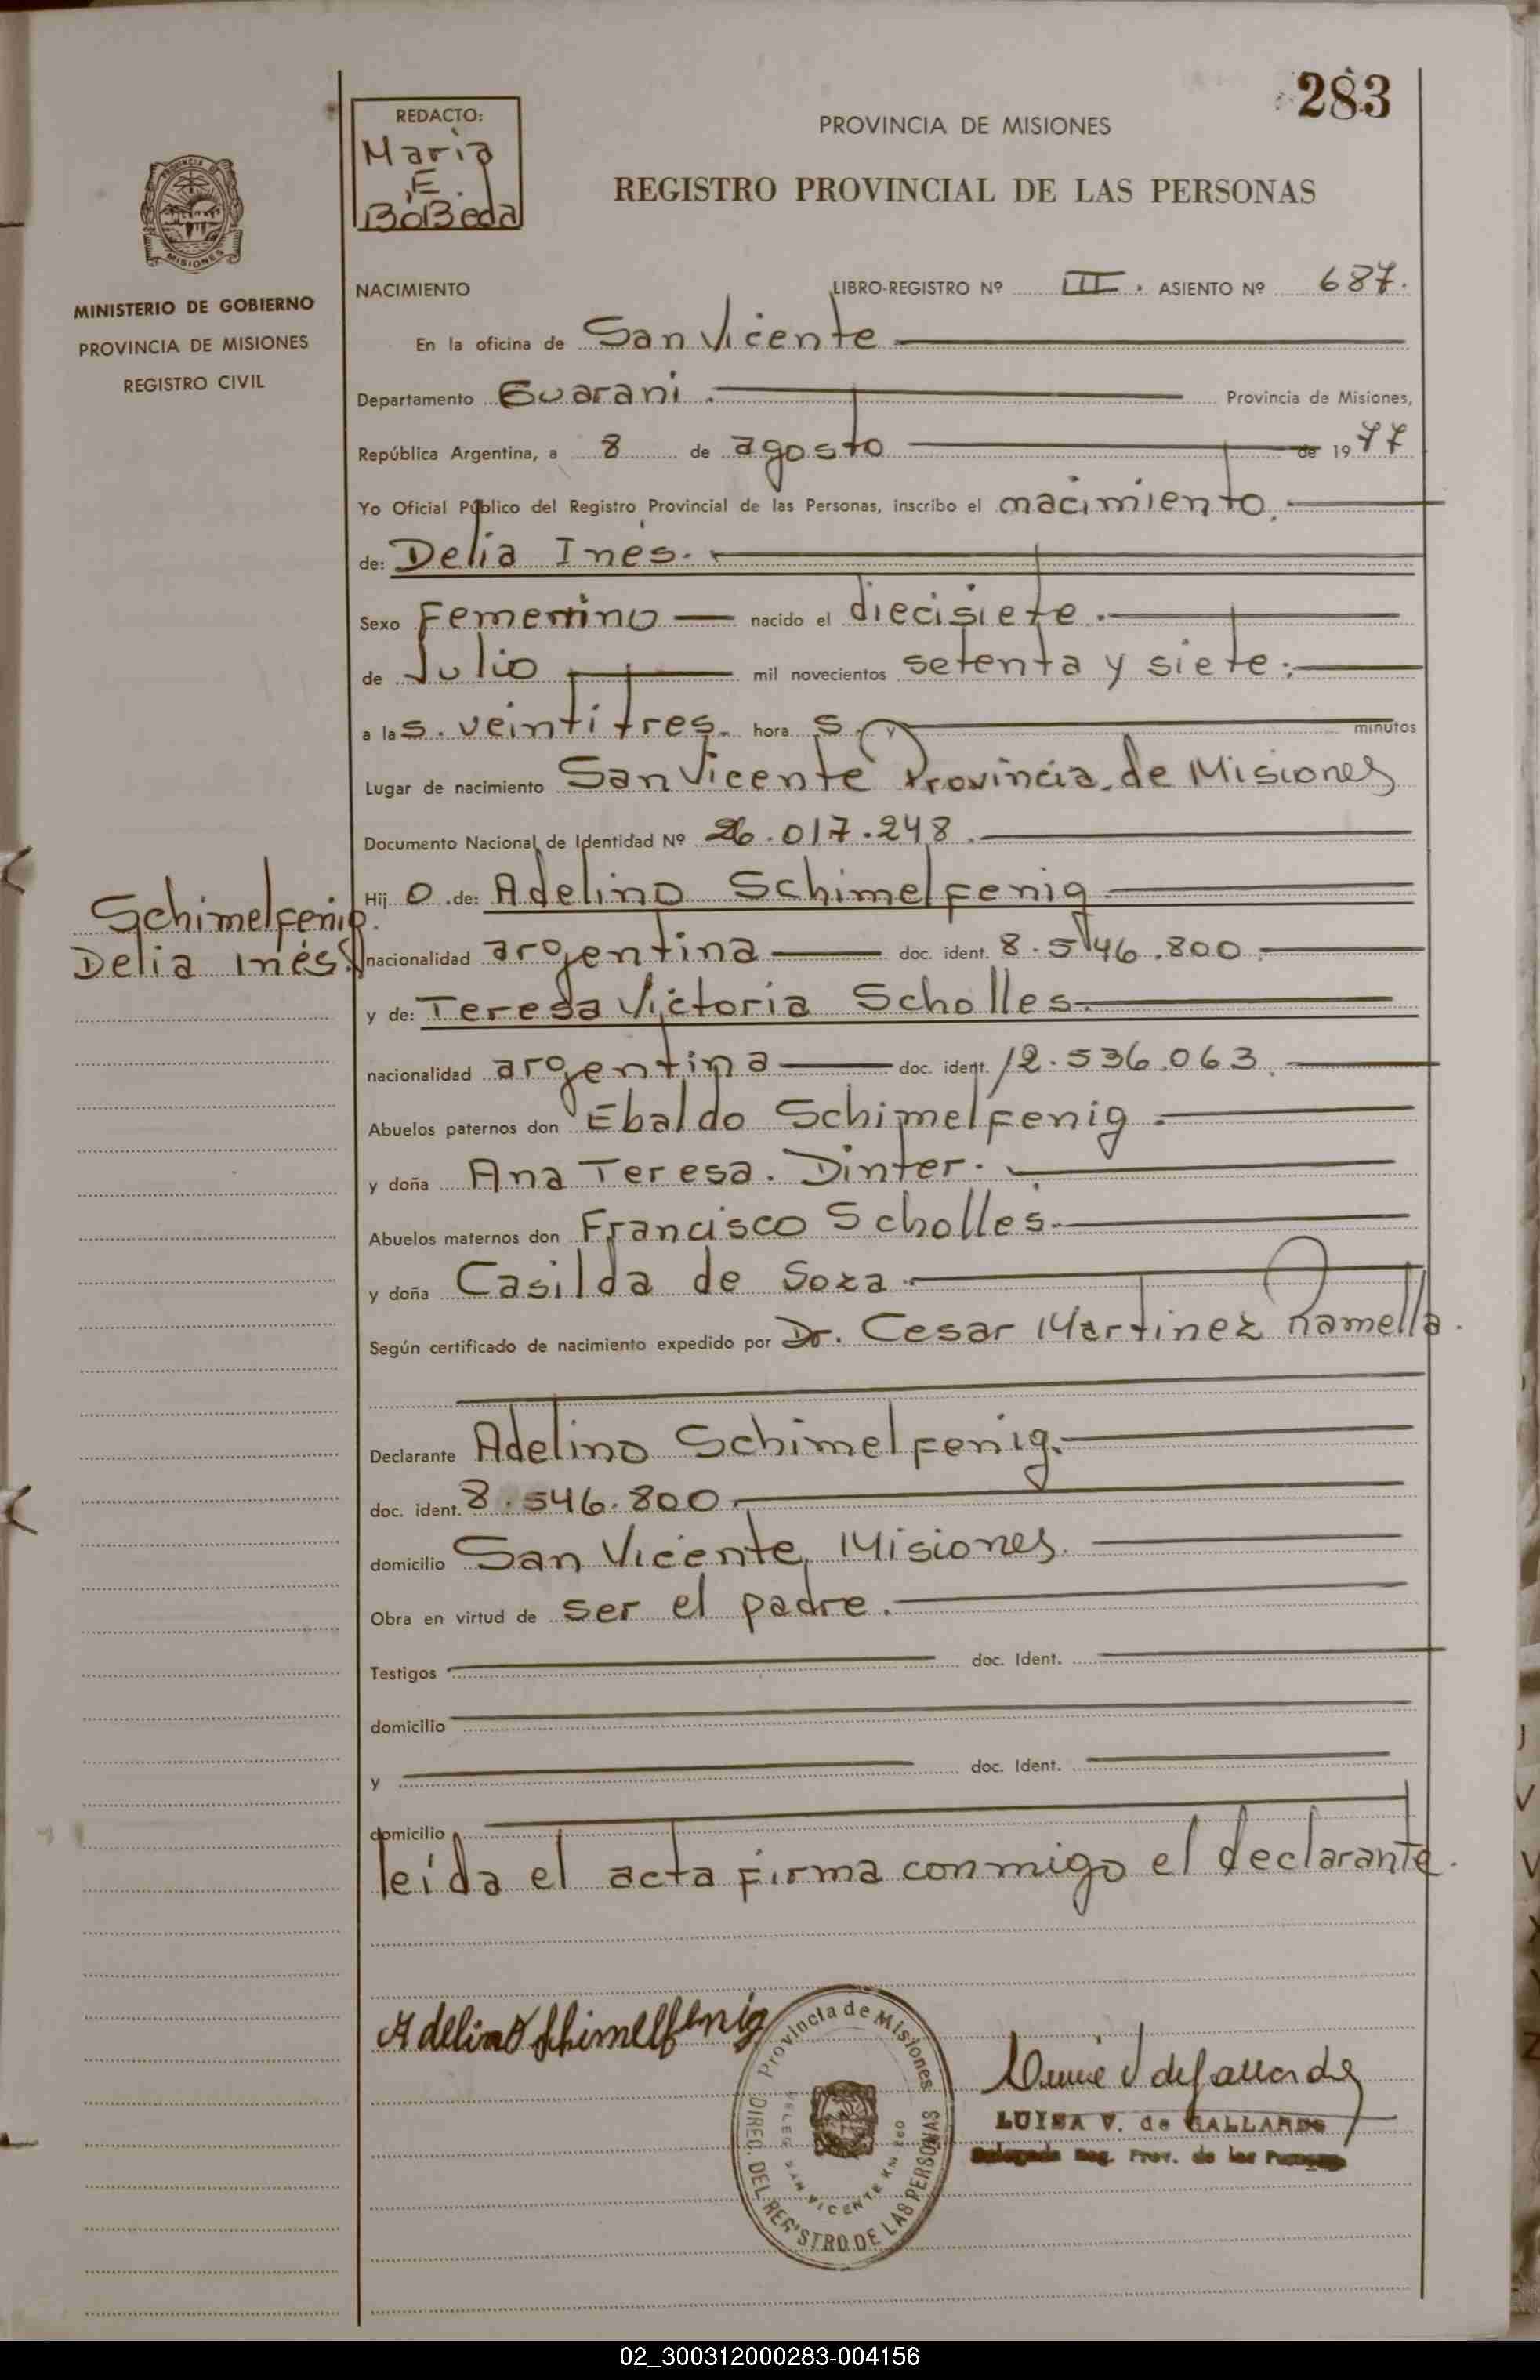 283
REDACTO:
Maria
E.
BoBeda
PROVINCIA DE MISIONES
REGISTRO PROVINCIAL DE LAS PERSONAS
PROVINCIA DE
MISIONES
MINISTERIO DE GOBIERNO
PROVINCIA DE MISIONES
REGISTRO CIVIL
NACIMIENTO LIBRO-REGISTRO Nº III. ASIENTO Nº 687.
En la oficina de San Vicente
Departamento Guarani. Provincia de Misiones,
República Argentina, a 8 de agosto de 1977
Yo Oficial Público del Registro Provincial de las Personas, inscribo el nacimiento.
de: Delia Inés.
Sexo Femenino nacido el diecisiete.
de Julio mil novecientos setenta y siete.
a las. veintitres. hora s. y minutos
Lugar de nacimiento San Vicente Provincia de Misiones
Documento Nacional de Identidad Nº 26.017.248.
Hij o de: Adelino Schimelfenig
Schimelfenig.
Delia Inés.
nacionalidad argentina doc. ident. 8.546.800.
y de: Teresa Victoria Scholles.
nacionalidad argentina doc. ident. 12.536.063.
Abuelos paternos don Ebaldo Schimelfenig.
y doña Ana Teresa. Dinter.
Abuelos maternos don Francisco Scholles.
y doña Casilda de Soza.
Según certificado de nacimiento expedido por Dr. Cesar Martinez Ramella.
Declarante Adelino Schimelfenig.
doc. ident. 8.546.800.
domicilio San Vicente, Misiones.
Obra en virtud de ser el padre.
Testigos doc. Ident.
domicilio
y doc. Ident.
domicilio
leída el acta firma conmigo el declarante.
Adelino Schimelfenig
Provincia de Misiones
DIREC. DEL REGISTRO DE LAS PERSONAS
SAN VICENTE
LUISA V. de GALLARDO
Delegada Reg. Prov. de las Personas
02_300312000283-004156